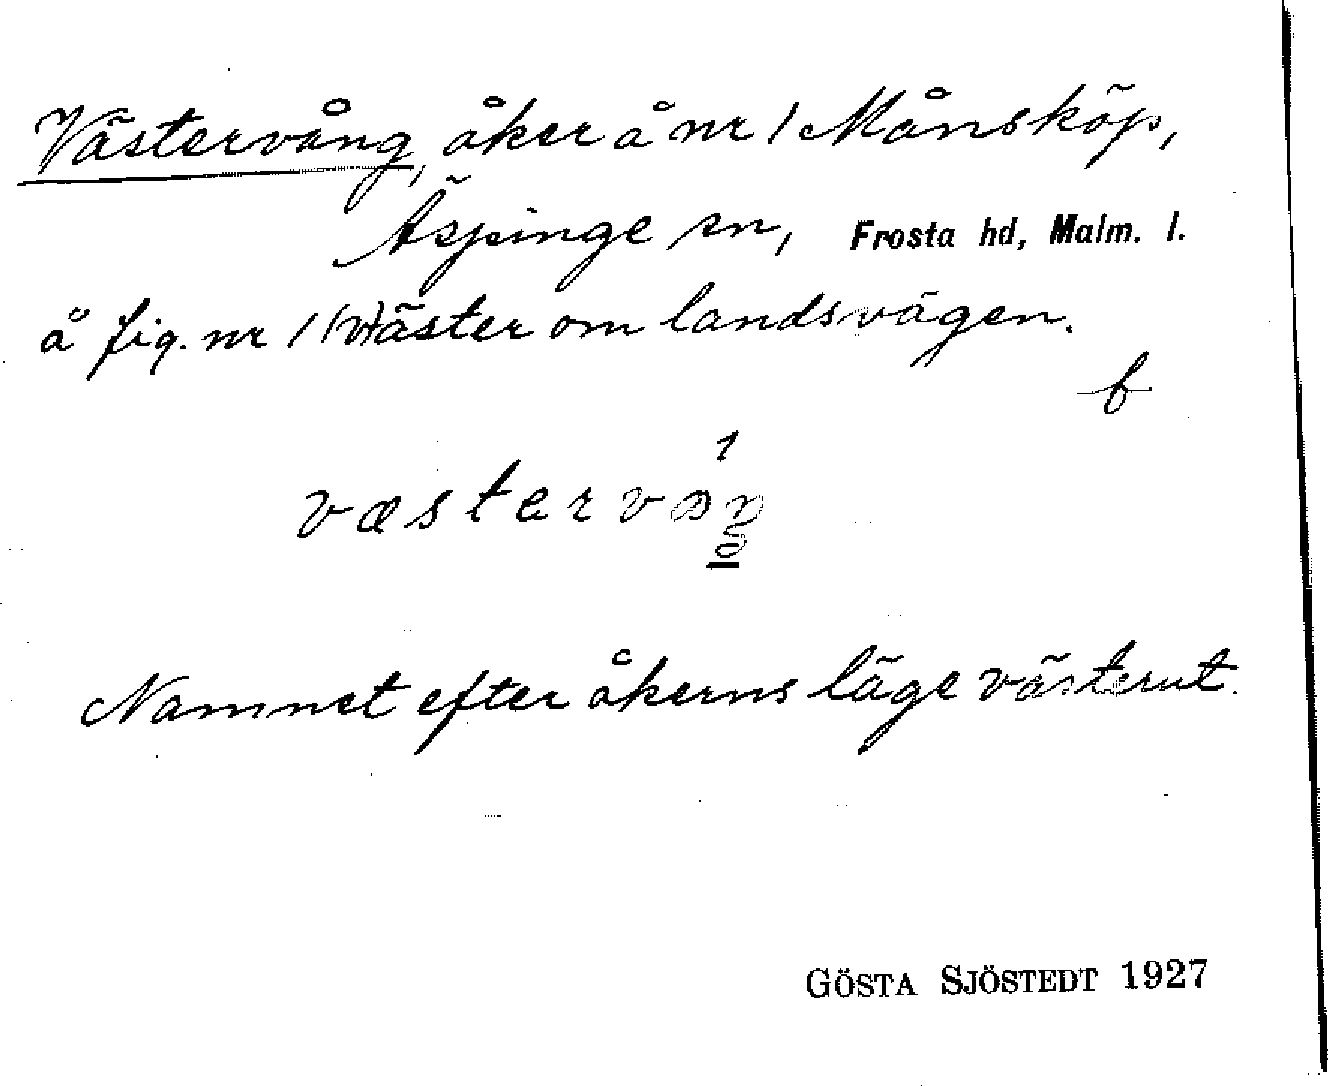 Västervång, åker å nr 1 Månsköp,
Äspinge sn, Frosta hd, Malm. l.
å fig. nr 1 (v)äster om landsvägen.
b
Namnet efter åkerns läge västerut.
GÖSTA SJÖSTEDT 1927